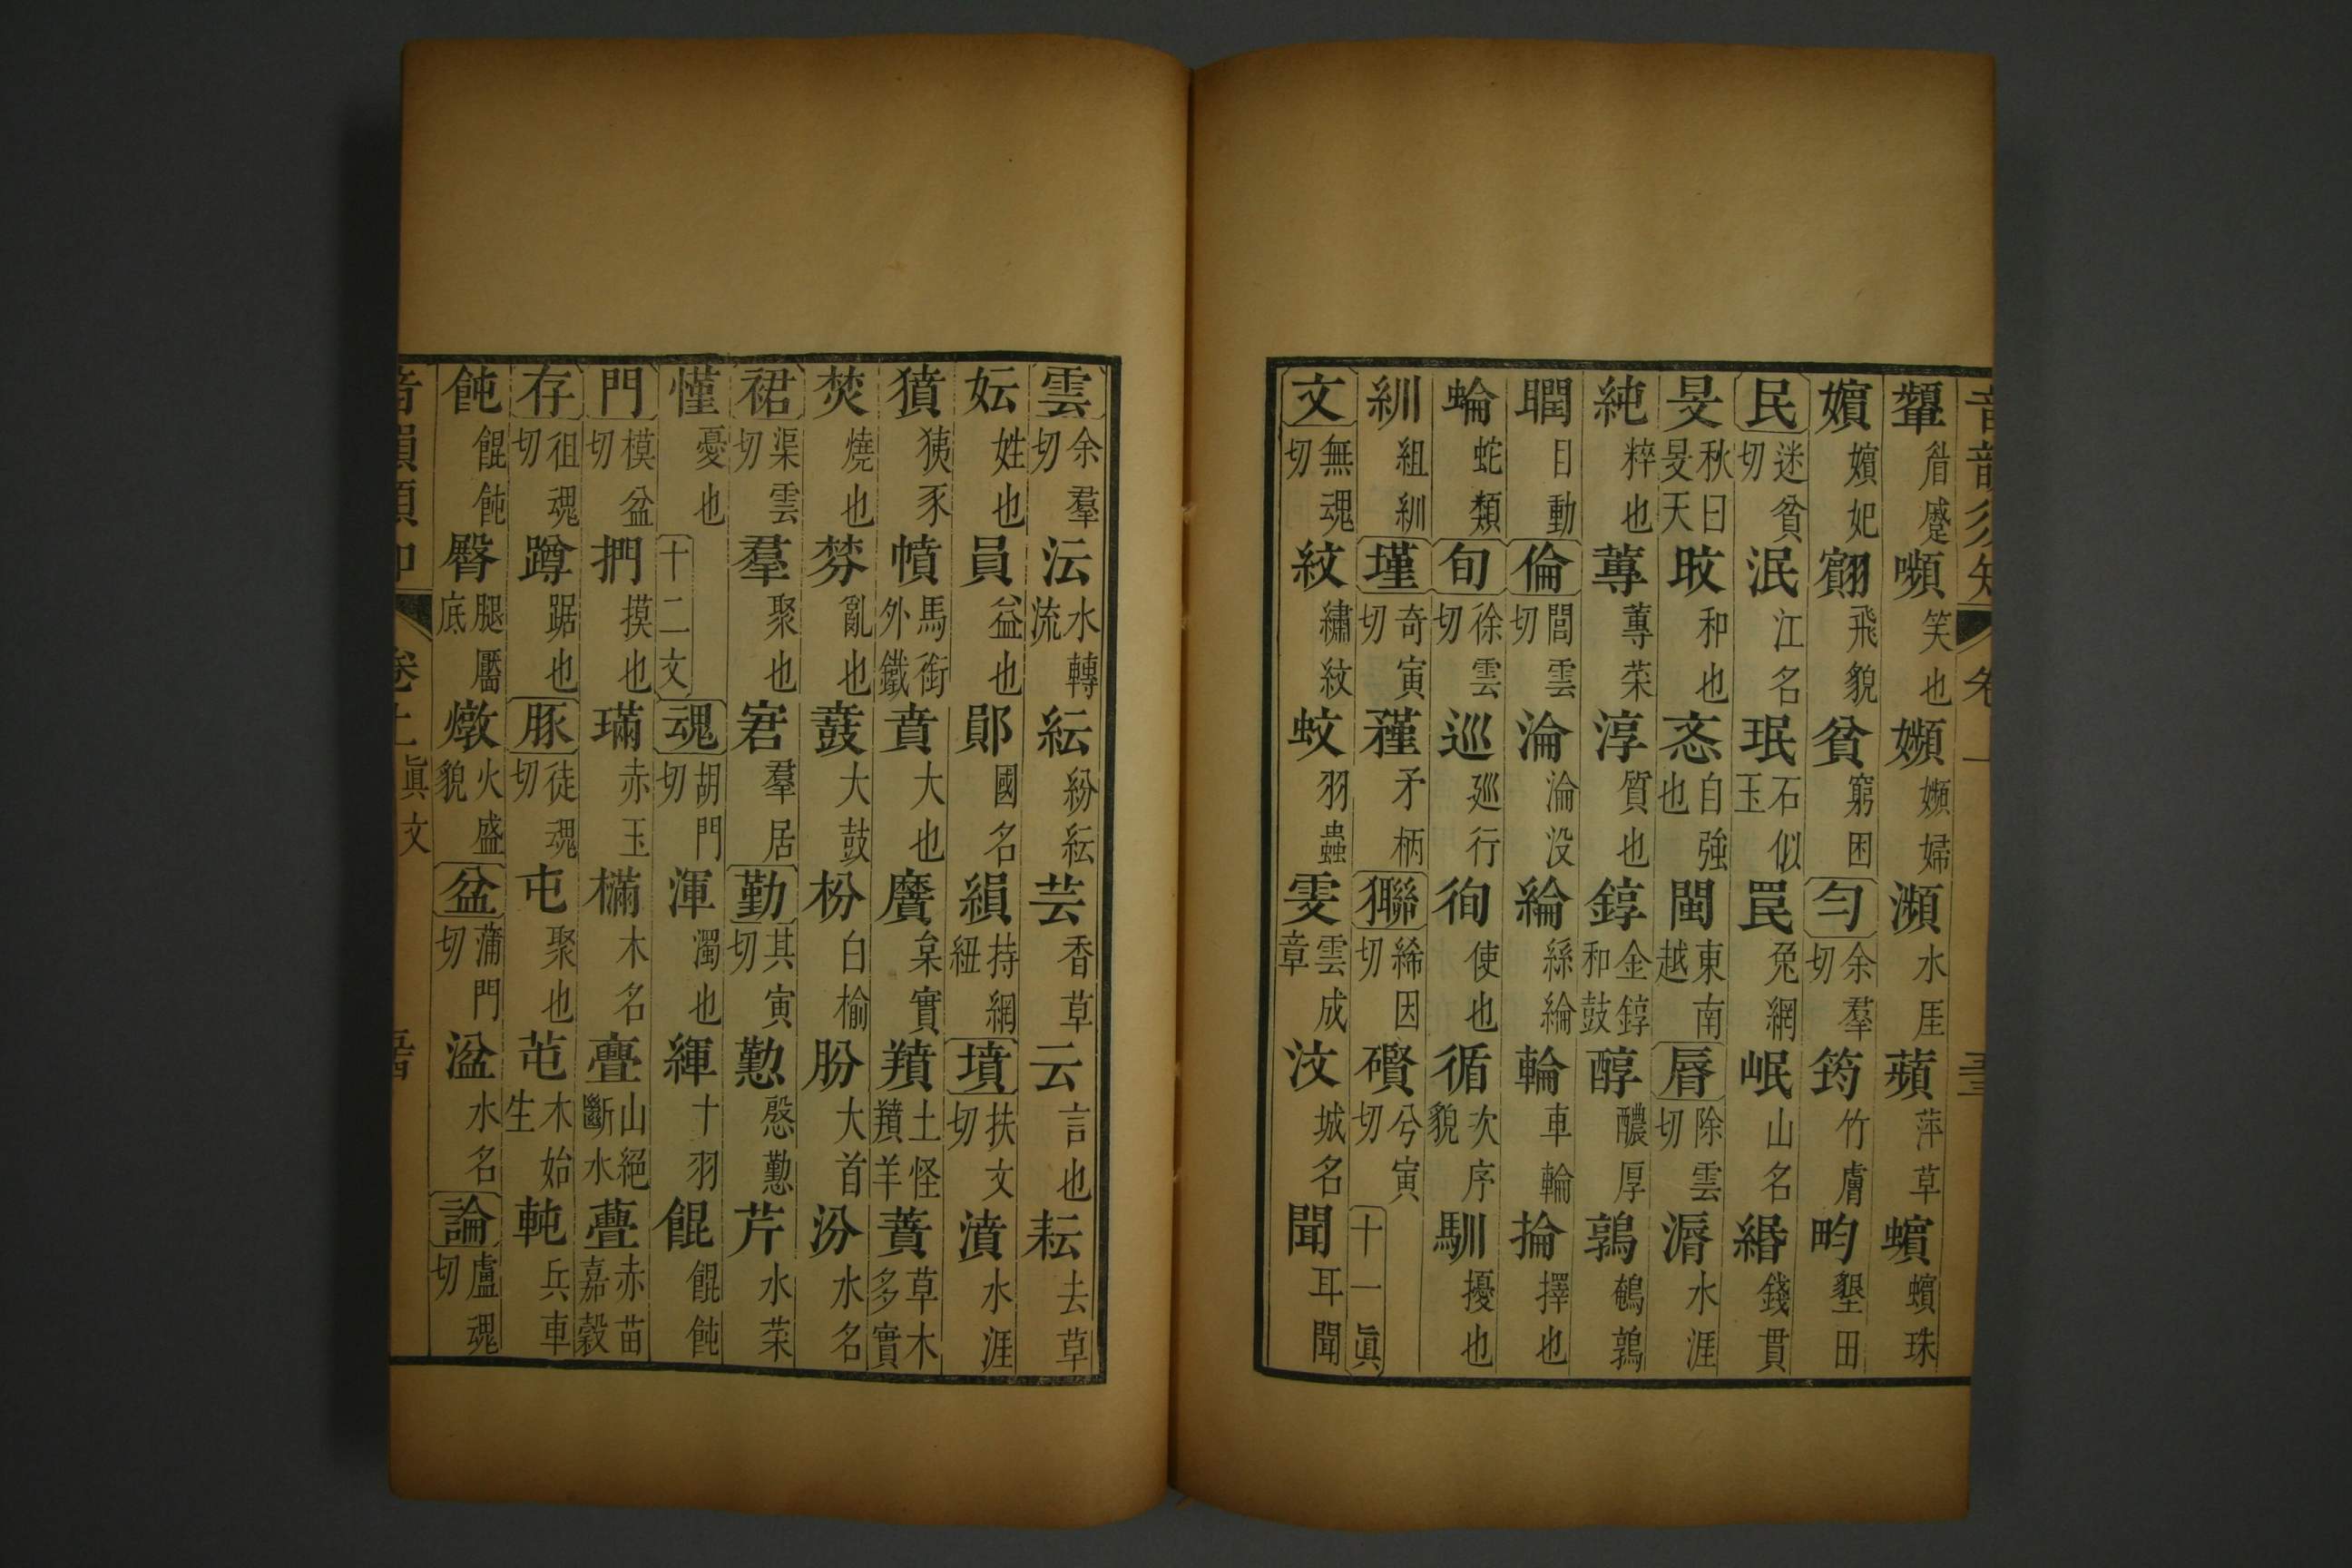 顰眉蹙嚬笑也嬪嬪婦瀕水厓蘋萍草蠙蠙珠
嬪嬪妃貧窮困勻余羣切筠竹膚畇墾田
民迷貧切泯江名珉石似玉罠兔網岷山名緡錢貫
旻秋曰旻天旼和也忞自強也閩東南越脣除雲切漘水涯
純粹也蓴蓴菜淳質也錞金錞和鼓醇醲厚鶉鵪鶉
瞤目動倫閭雲切淪淪没綸絲綸輪車輪掄擇也
蜦蛇類旬徐雲切巡廵行徇使也循次序貌馴擾也
紃組紃墐奇寅切矜矛柄絺因切礥兮寅切十一眞
文無魂切紋繡紋蚊羽蟲雯雲成章汶城名聞耳聞
雲余羣切沄水轉流紜紛紜芸香草云言也耘去草
妘姓也員益也鄖國名縜持綱紐墳扶文切濆水涯
獖㹻豕幩馬銜外鐵賁大也黂枲實羵土怪羵羊蕡草木多實
焚燒也棼亂也鼖大鼓枌白榆肦大首汾水名
裙渠雲切羣聚也宭羣居勤其寅切懃慇懃芹水菜
慬憂也十二文魂胡門切渾濁也緷十羽餛餛飩
門模盆切捫摸也璊赤玉樠木名亹山絕斷水虋赤苗嘉穀
存徂魂切蹲踞也豚徒魂切屯聚也芚木始生軘兵車
飩餛飩臀腿靨底燉火盛貌盆蒲門切湓水名論盧魂切
眞文